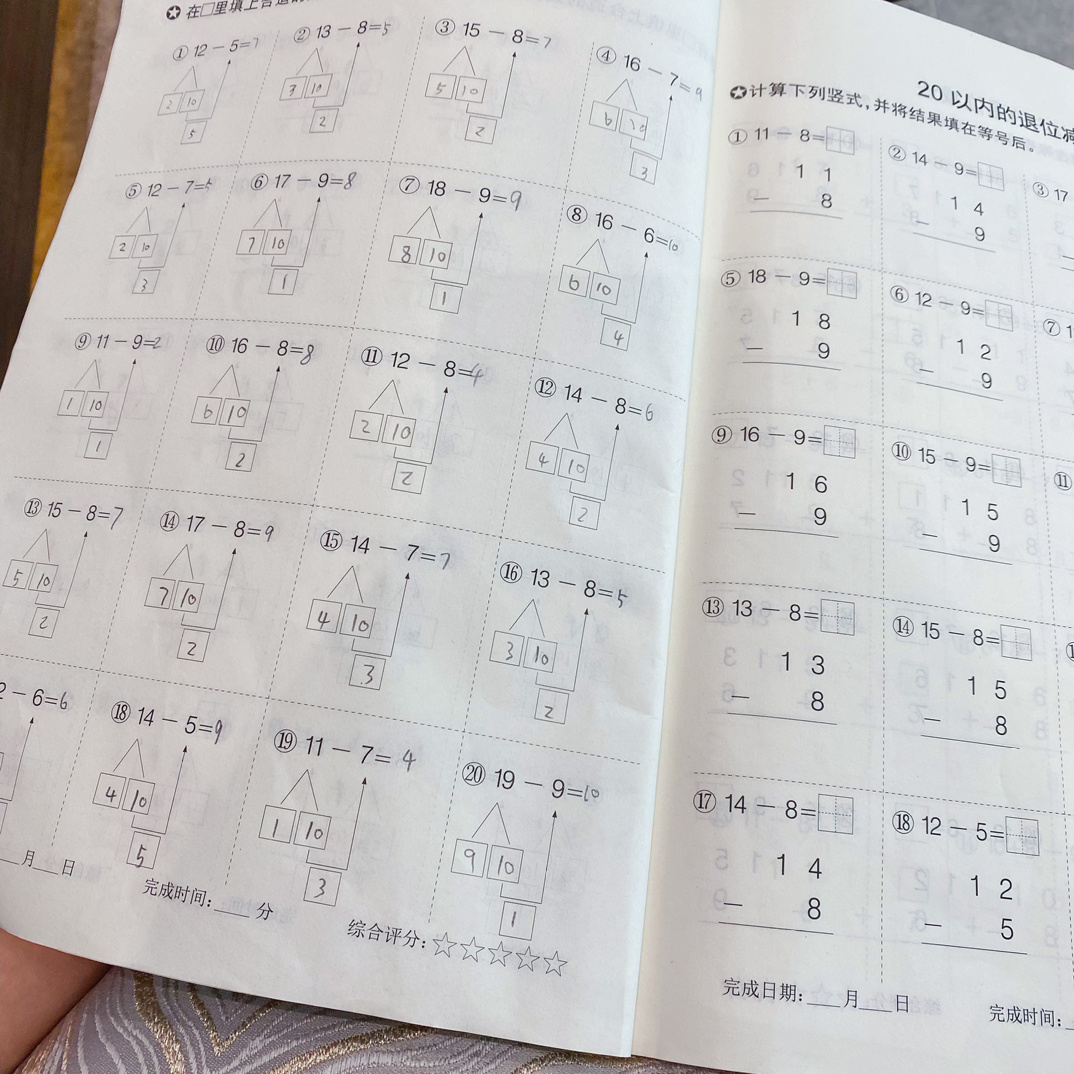 在□里填上合适的
① 12 - 5=7
2 10
5
② 13 - 8=5
3 10
2
③ 15 - 8=7
5 10
2
④ 16 - 7=9
6 10
3
⑤ 12 - 7=5
2 10
3
⑥ 17 - 9=8
7 10
1
⑦ 18 - 9=9
8 10
1
⑧ 16 - 6=10
6 10
4
⑨ 11 - 9=2
1 10
1
⑩ 16 - 8=8
6 10
2
⑪ 12 - 8=4
2 10
2
⑫ 14 - 8=6
4 10
2
⑬ 15 - 8=7
5 10
2
⑭ 17 - 8=9
7 10
2
⑮ 14 - 7=7
4 10
3
⑯ 13 - 8=5
3 10
2
2 - 6=6
⑱ 14 - 5=9
4 10
5
⑲ 11 - 7=4
1 10
3
⑳ 19 - 9=10
9 10
1
月 日
完成时间: 分
综合评分:☆☆☆☆☆
20 以内的退位减
✪计算下列竖式,并将结果填在等号后。
① 11 - 8=
1 1
- 8
② 14 - 9=
1 4
- 9
③ 17
⑤ 18 - 9=
1 8
- 9
⑥ 12 - 9=
1 2
- 9
⑦ 1
⑨ 16 - 9=
1 6
- 9
⑩ 15 - 9=
1 5
- 9
⑪
⑬ 13 - 8=
1 3
- 8
⑭ 15 - 8=
1 5
- 8
⑰ 14 - 8=
1 4
- 8
⑱ 12 - 5=
1 2
- 5
完成日期: 月 日
完成时间: